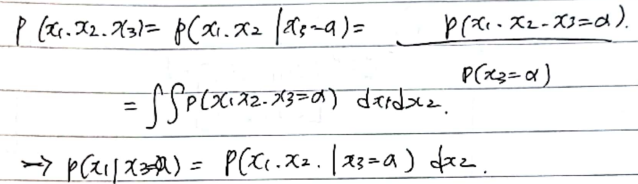 P(x₁.x₂.x₃)= p(x₁.x₂ |x₃=a)= p(x₁.x₂-x₃=a).
p(x₃=a)
= ∫∫p(x₁x₂-x₃=a) dx₁dx₂.
→ p(x₁|x₃=a) = p(x₁.x₂.|x₃=a) dx₂.